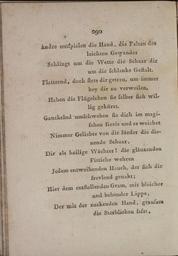 290
Andre entspielen die Hand, die Falten des
leichten Gewandes
Schlingt um die Wette die Schaar dir
um die schlanke Gestalt.
Flatternd, doch stets dir getreu, um immer
bey dir zu verweilen,
Haben die Flügelchen sie selber sich wil-
lig gekürzt.
Gaukelnd umschweben sie dich im magi-
schen Kreis und es weichet
Nimmer Geliebte von dir die
nende Schaar,
Dir als heilige Wächter! die glänzenden
Fittiche wehren
Jedem entweihenden Hauch, der sich dir
frevelnd genaht;
Hier dem entstellenden Gram, mit bleicher
und bebender Lippe,
Der mit der Hand, grausam
die Sterblichen fasst,